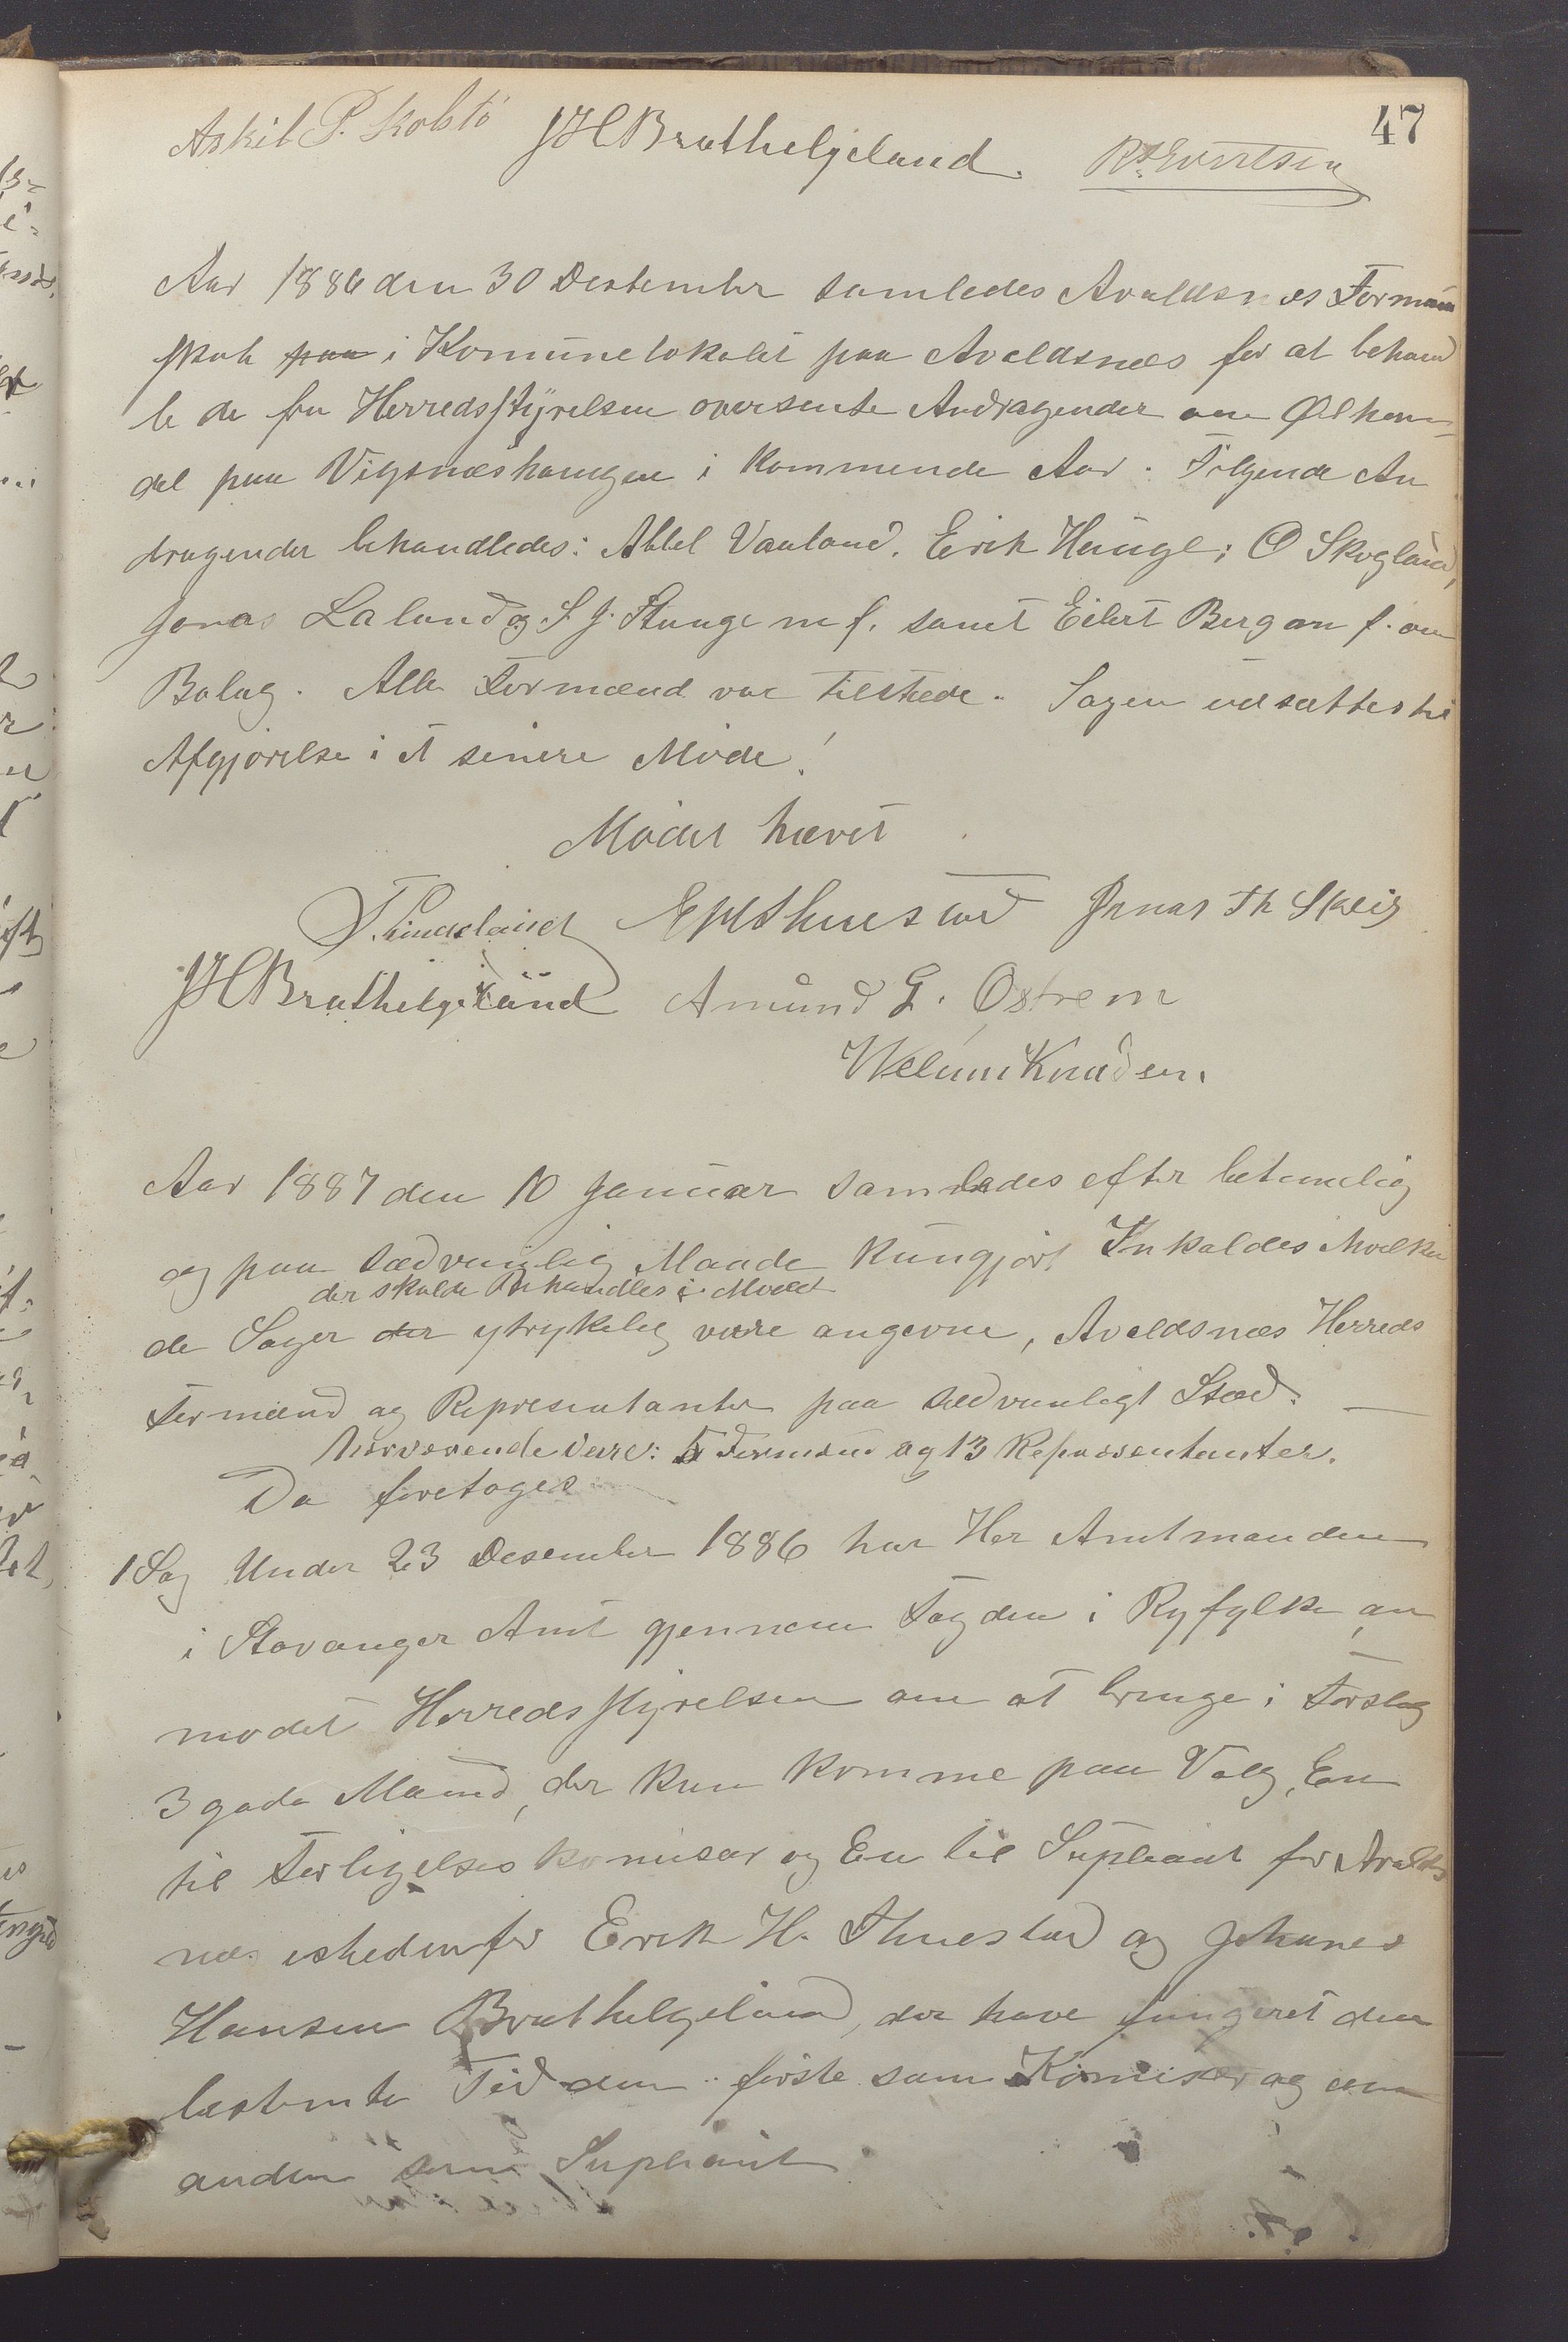 47
Askil P. Kolstö JHBrathelgeland. R S Evertsen
Aar 1886 den 30 Destember samledes Avaldsnes Formænd
skab paa i Komunelokalet paa Avaldsnes for at behand
le de fra Herredsstyrelsen oversente Andragender om Ølhan-
del paa Vigsnæshaugen i kommende Aar. Følgende An
dragender behandledes: Abbel Vaaland. Erik Hauge; O Skogland,
Jonas Laland og S J. Stange m f. samt Eilert Berg om f. om
Bolag. Alle Formænd var tilstede. Sagen udsættes til
Afgjørelse i et senere Møde!
Mødet hævet
T. Lindeland EHThuestad Jonas Th Skeie
JHBrathelgeland Amund G. Østrem
Velum Knudsen.
Aar 1887 den 10 Januar samledes efter betimelig
og paa sædvanlig Maade kungjort Inkaldes hvilke
der skulde Behandles i Mødet
de Sager der ytrykelig vare angevne, Avaldsnes Herreds
Formænd og Representanter paa sædvanligt Sted.
Nærværende vare: 5 Formænd og 13 Repræsentanter.
Da foretoges
1 Sag Under 23 Desember 1886 har Her Amtmanden
i Stavanger Amt gjennem Fogden i Ryfylke an
modet Herredsstyrelsen om at bringe i Forslag
3 gode Mænd, der kun komme paa Valg, En
til Forligelseskomisær og En til Supleant for Avalds
nes istedenfor Erik H. Thuestad og Johanes
Hansen Brathelgeland, der have fungeret den
bestemte Tid den første som Komisær og den
anden som Supleant